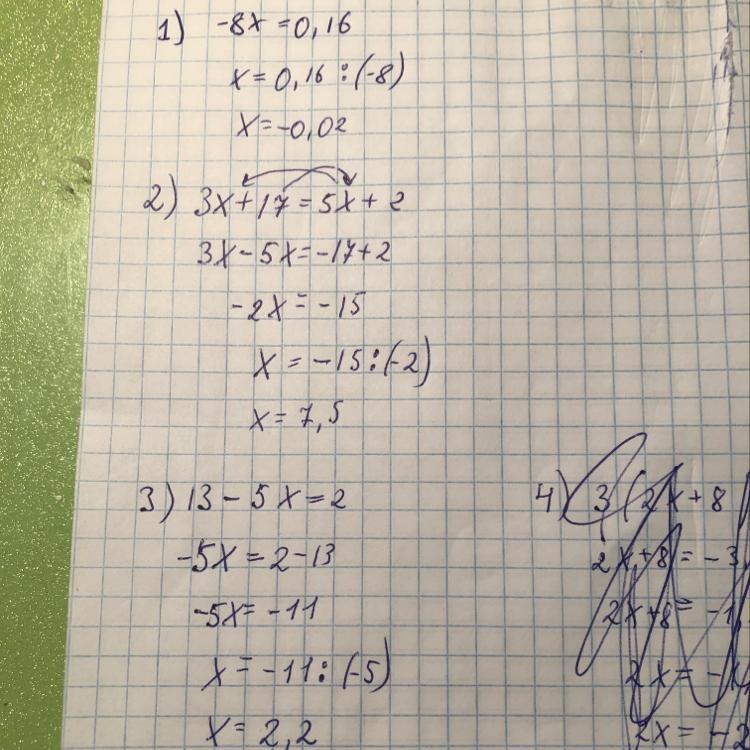 1) -8x = 0,16
x = 0,16 : (-8)
x = -0,02
2) 3x + 17 = 5x + 2
3x - 5x = -17 + 2
-2x = -15
x = -15 : (-2)
x = 7,5
3) 13 - 5x = 2
-5x = 2 - 13
-5x = -11
x = -11 : (-5)
x = 2,2
4) 3 (2x + 8
2x + 8 = -3
2x + 8 = -1
2x = -
2x = -